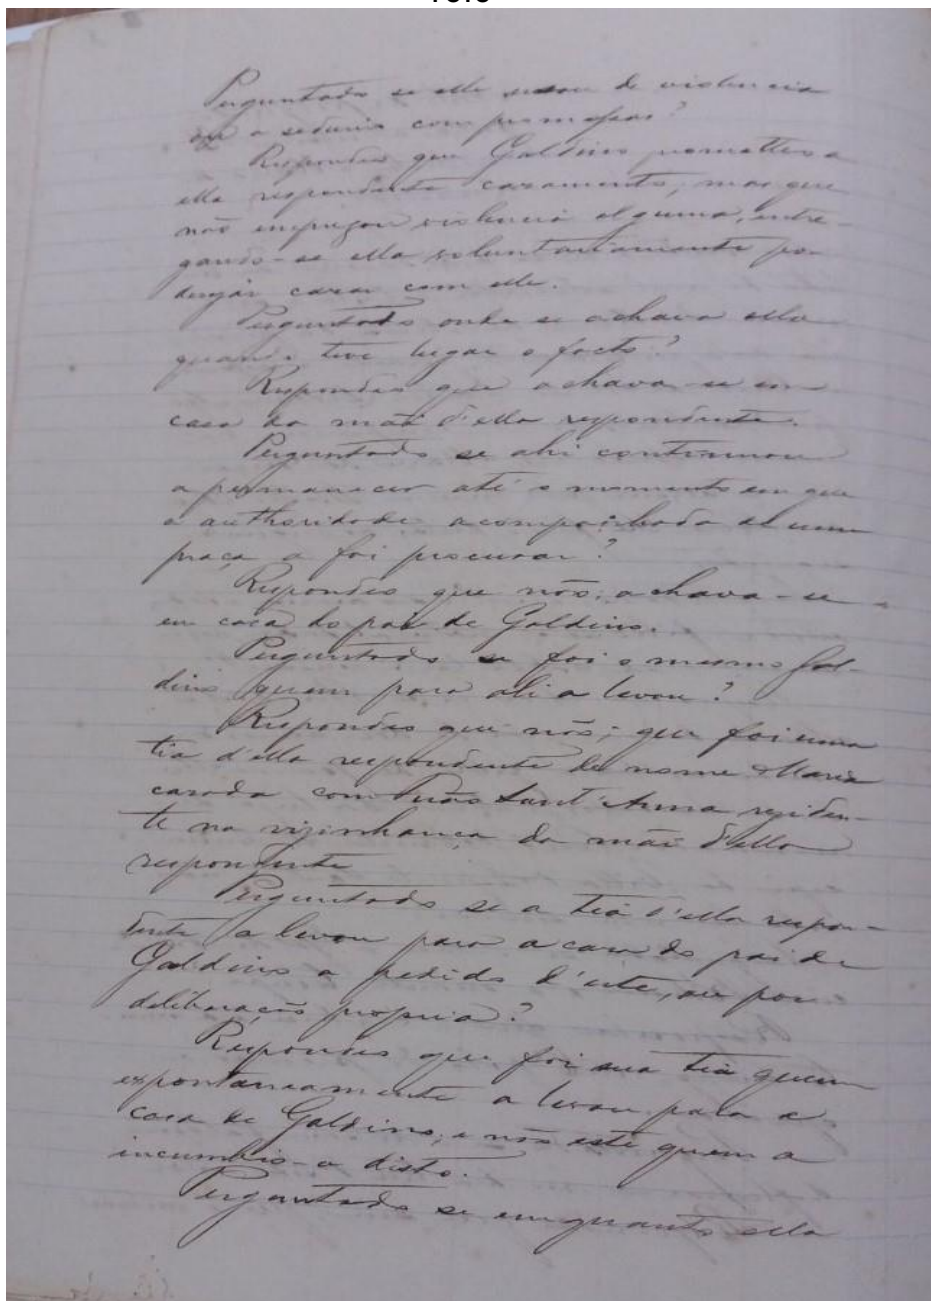 Perguntado se elle usou de violencia
ou a seduzio com promessas?
Respondeo que Galdino prometteo a
ella respondente casamento, mas que
não empregou violencia alguma, entre-
gando-se ella voluntariamente por
desejar casar com elle.
Perguntado onde se achava ella
quando teve lugar o facto?
Respondeo que achava-se em
casa da mãi d'ella respondente.
Perguntado se ahi continuou
a permanecer até o momento em que
a authoridade acompanhada de uma
praça a foi procurar?
Respondeo que não; achava-se
em casa do pai de Galdino.
Perguntado se foi o mesmo Gal-
dino quem para ali a levou?
Respondeo que não; que foi uma
tia d'ella respondente de nome Maria
casada com Sant'Anna residen-
te na vizinhança da mãi d'ella
respondente
Perguntado se a tia d'ella respon-
dente a levou para a casa do pai de
Galdino a pedido d'este, ou por
deliberação propria?
Respondeo que foi sua tia quem
expontaneamente a levou para a
casa de Galdino, e não este quem a
incumbio-a disto.
Perguntado se emquanto ella